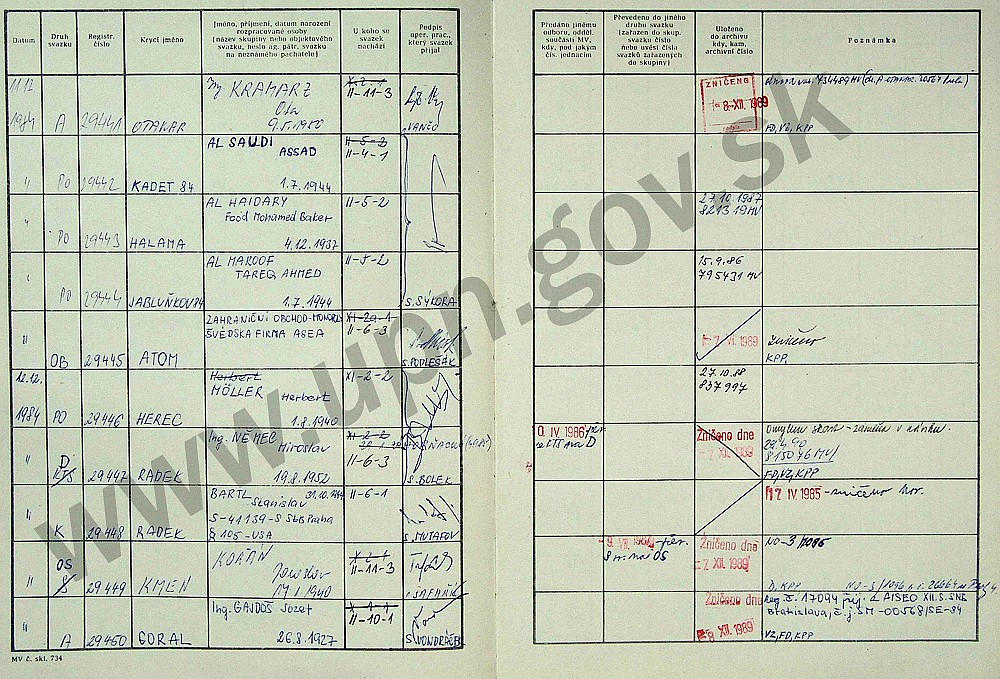 Datum
Druh svazku
Registr. číslo
Krycí jméno
Jméno, příjmení, datum narození rozpracované osoby
(název skupiny nebo objektového svazku, heslo ag. pátr. svazku na neznámého pachatele)
U koho se svazek nachází
Podpis oper. prac., který svazek přijal
Předáno jinému odboru, odděl. součásti MV, kdy, pod jakým čís. jednacím
Převedeno do jiného druhu svazku (zařazen do skup. svazku číslo nebo uvést čísla svazků zařazených do skupiny)
Uloženo do archivu kdy, kam, archivní číslo
Poznámka
11.12. 1984 A 29441 OTAKAR
Ing KRAMARZ
Ota
9.5.1950
II-11-3
VANČO
ZNIČENO
8. XII. 1989
FD, VZ, KPP
" PO 29442 KADET 84
AL SAUDI
ASSAD
1.7.1944
II-5-2
II-4-1
" PO 29443 HALAMA
AL HAIDARY
Food Mohamed Baker
4.12.1937
II-5-2
27.10.1987
821319 MV
" PO 29444 JABLUŇKOV 84
AL MAROOF
TAREQ AHMED
1.7.1944
II-5-2
S. SÝKORA
15.9.86
795431 MV
" OB 29445 ATOM
ZAHRANIČNÍ OBCHOD-
ŠVÉDSKA FIRMA ASEA
II-6-3
S. PODLEŠÁK
1989
Zničeno
KPP,
12.12. 1984 PO 29446 HEREC
Herbert
MÖLLER Herbert
1.8.1940
XI-2-2
27.10.88
837997
" D 29447 RADEK
Ing. NĚMEC
Miroslav
19.8.1952
XI-2-2
II-6-3
S. BOLEK
IV 1986
Zničeno dne
7. XII. 1989
Omylem skart - záměna v
815076 MV
FD, VZ, KPP
" K 29448 RADEK
BARTL 31.10.1924
Stanislav
S-41139-S StB Praha
§ 105 - USA
II-6-1
S. MUTAFOV
17 IV 1985 - zničeno
" OS 29449 KMEN
KOŘÁN
Jaroslav
1940
II-11-3
ŠAFAŘÍK
na OS
Zničeno dne
7. XII. 1989
NO-3
D, KPP
" A 29450 GORAL
Ing. GAJDOŠ Jozef
26.8.1927
X-1-1
II-10-1
S. VONDRÁČEK
Zničeno dne
8. XII. 1989
reg. č. 17094 AISEO XII. S. SNB
Bratislava, č.j. SM-00568/SE-84
VZ, FD, KPP
MV č. skl. 734
www.upn.gov.sk